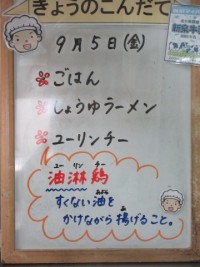 きょうのこんだて
9月5日(金)
ごはん
しょうゆラーメン
ユーリンチー
ユー リン チー
油淋鶏
すくない油を
あぶら
かけながら揚げること。
あ